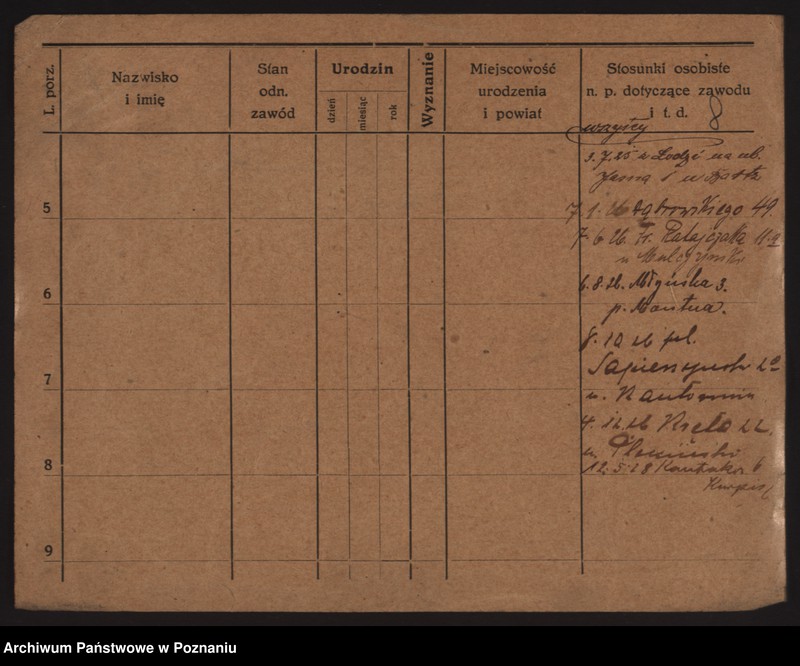 L. porz.
Nazwisko
i imię
Stan
odn.
zawód
Urodzin
dzień
miesiąc
rok
Wyznanie
Miejscowość
urodzenia
i powiat
Stosunki osobiste
n. p. dotyczące zawodu
i t. d. 8
wszyscy
3.7.25 z Łodzi na ul.
Jasna
5
7.1.26 Dąbrowskiego 49.
7.6.26. Fr. Ratajczaka 11a
u
6
6.8.26. 3.
p. Mantua.
8.10.26 pl.
7
Sapieżyński 2a
u.
4.12.26 22.
u.
8
12.5.28 6
9
Archiwum Państwowe w Poznaniu